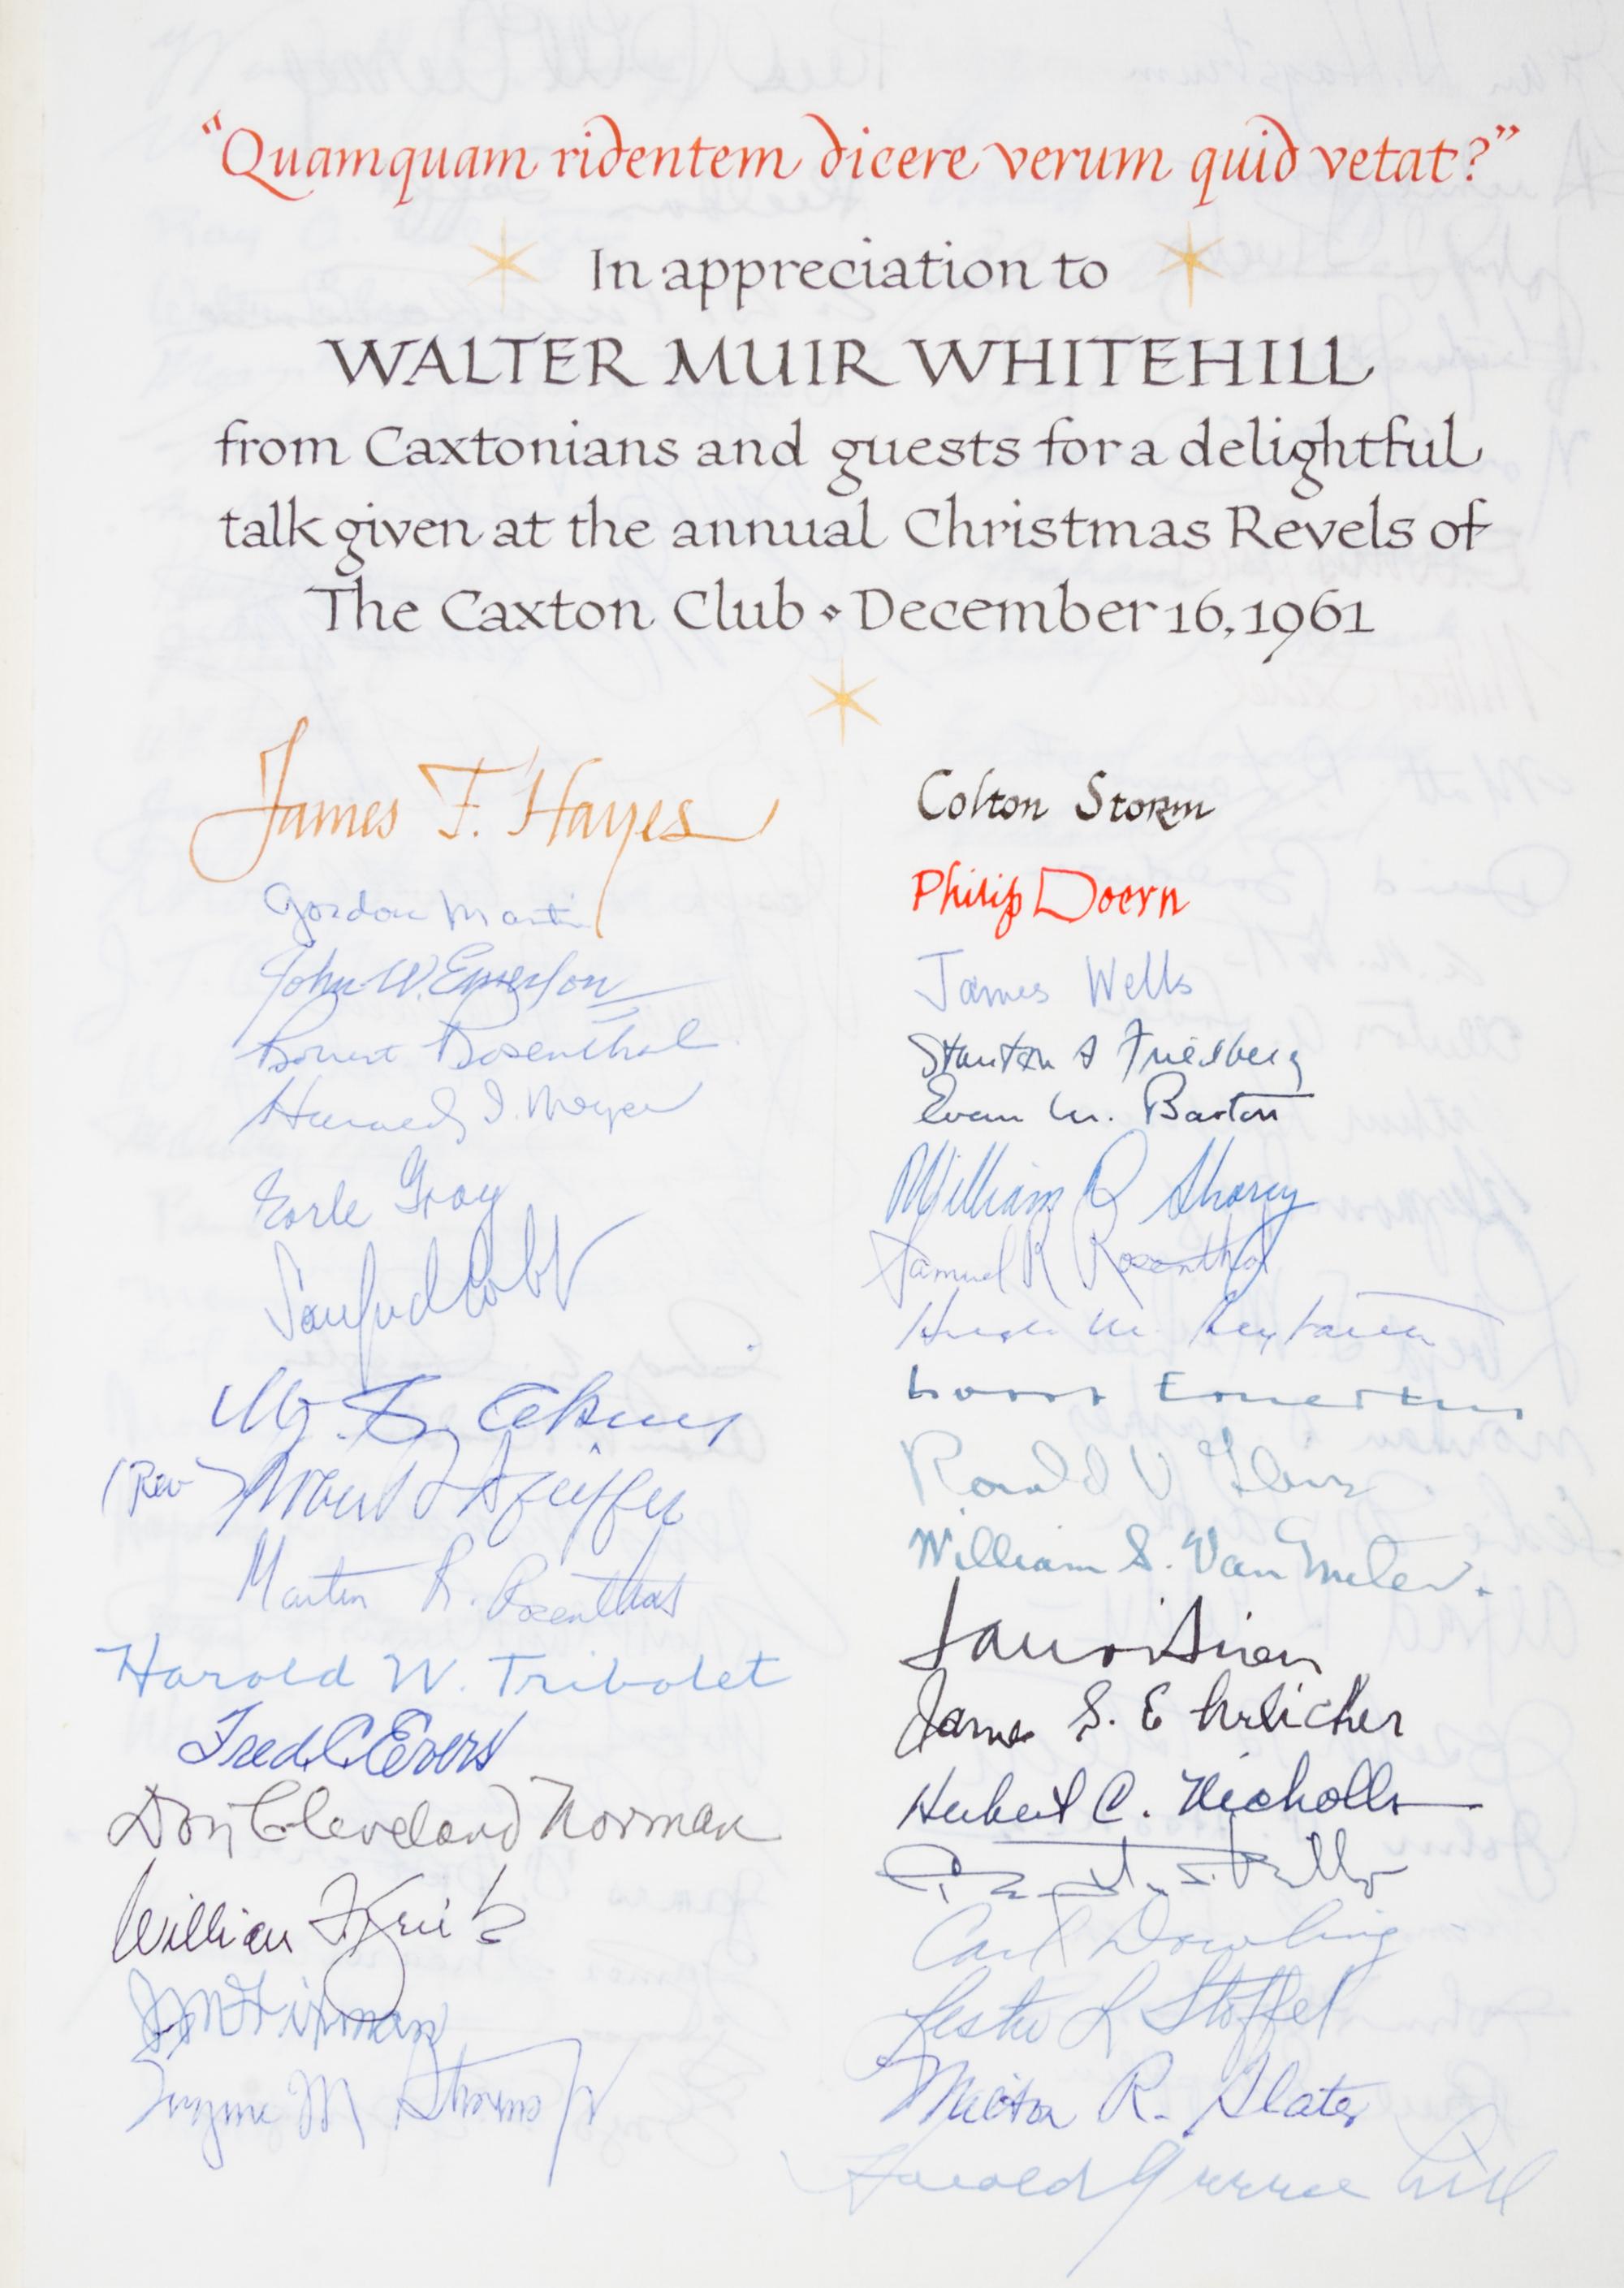 “Quamquam ridentem dicere verum quid vetat?”
In appreciation to
WALTER MUIR WHITEHILL
from Caxtonians and guests for a delightful
talk given at the annual Christmas Revels of
The Caxton Club • December 16, 1961
James F. Hayes
Gordon Martin
John W. Emerson
Robert Rosenthal
Earle Gray
Sanford Cobb
(Rev)
Martin R. Rosenthal
Harold W. Tribolet
Fred C Evers
Don Cleveland Norman
William
M
Colton Storm
Philip Doern
James Wells
Stanton A Friedberg
Evan M. Barton
William R Shorey
Samuel R Rosenthal
William S. Van Meter.
James S. Ehrlicher
Herbert C. Nicholls
Carl Dowling
Lester L Stoffel
R. Slater
Harold Greene